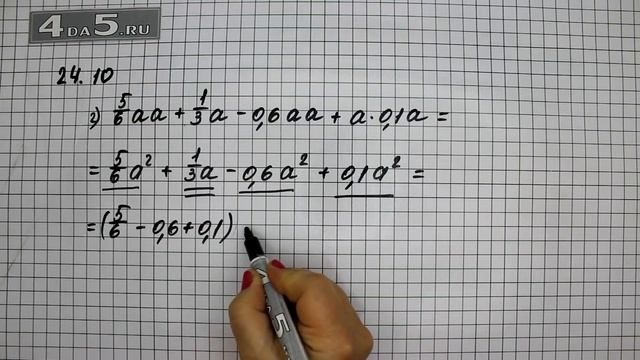 4DA5.RU
24.10
г) 5/6 aa + 1/3 a - 0,6aa + a · 0,1a =
= 5/6 a² + 1/3 a - 0,6a² + 0,1a² =
= (5/6 - 0,6 + 0,1)